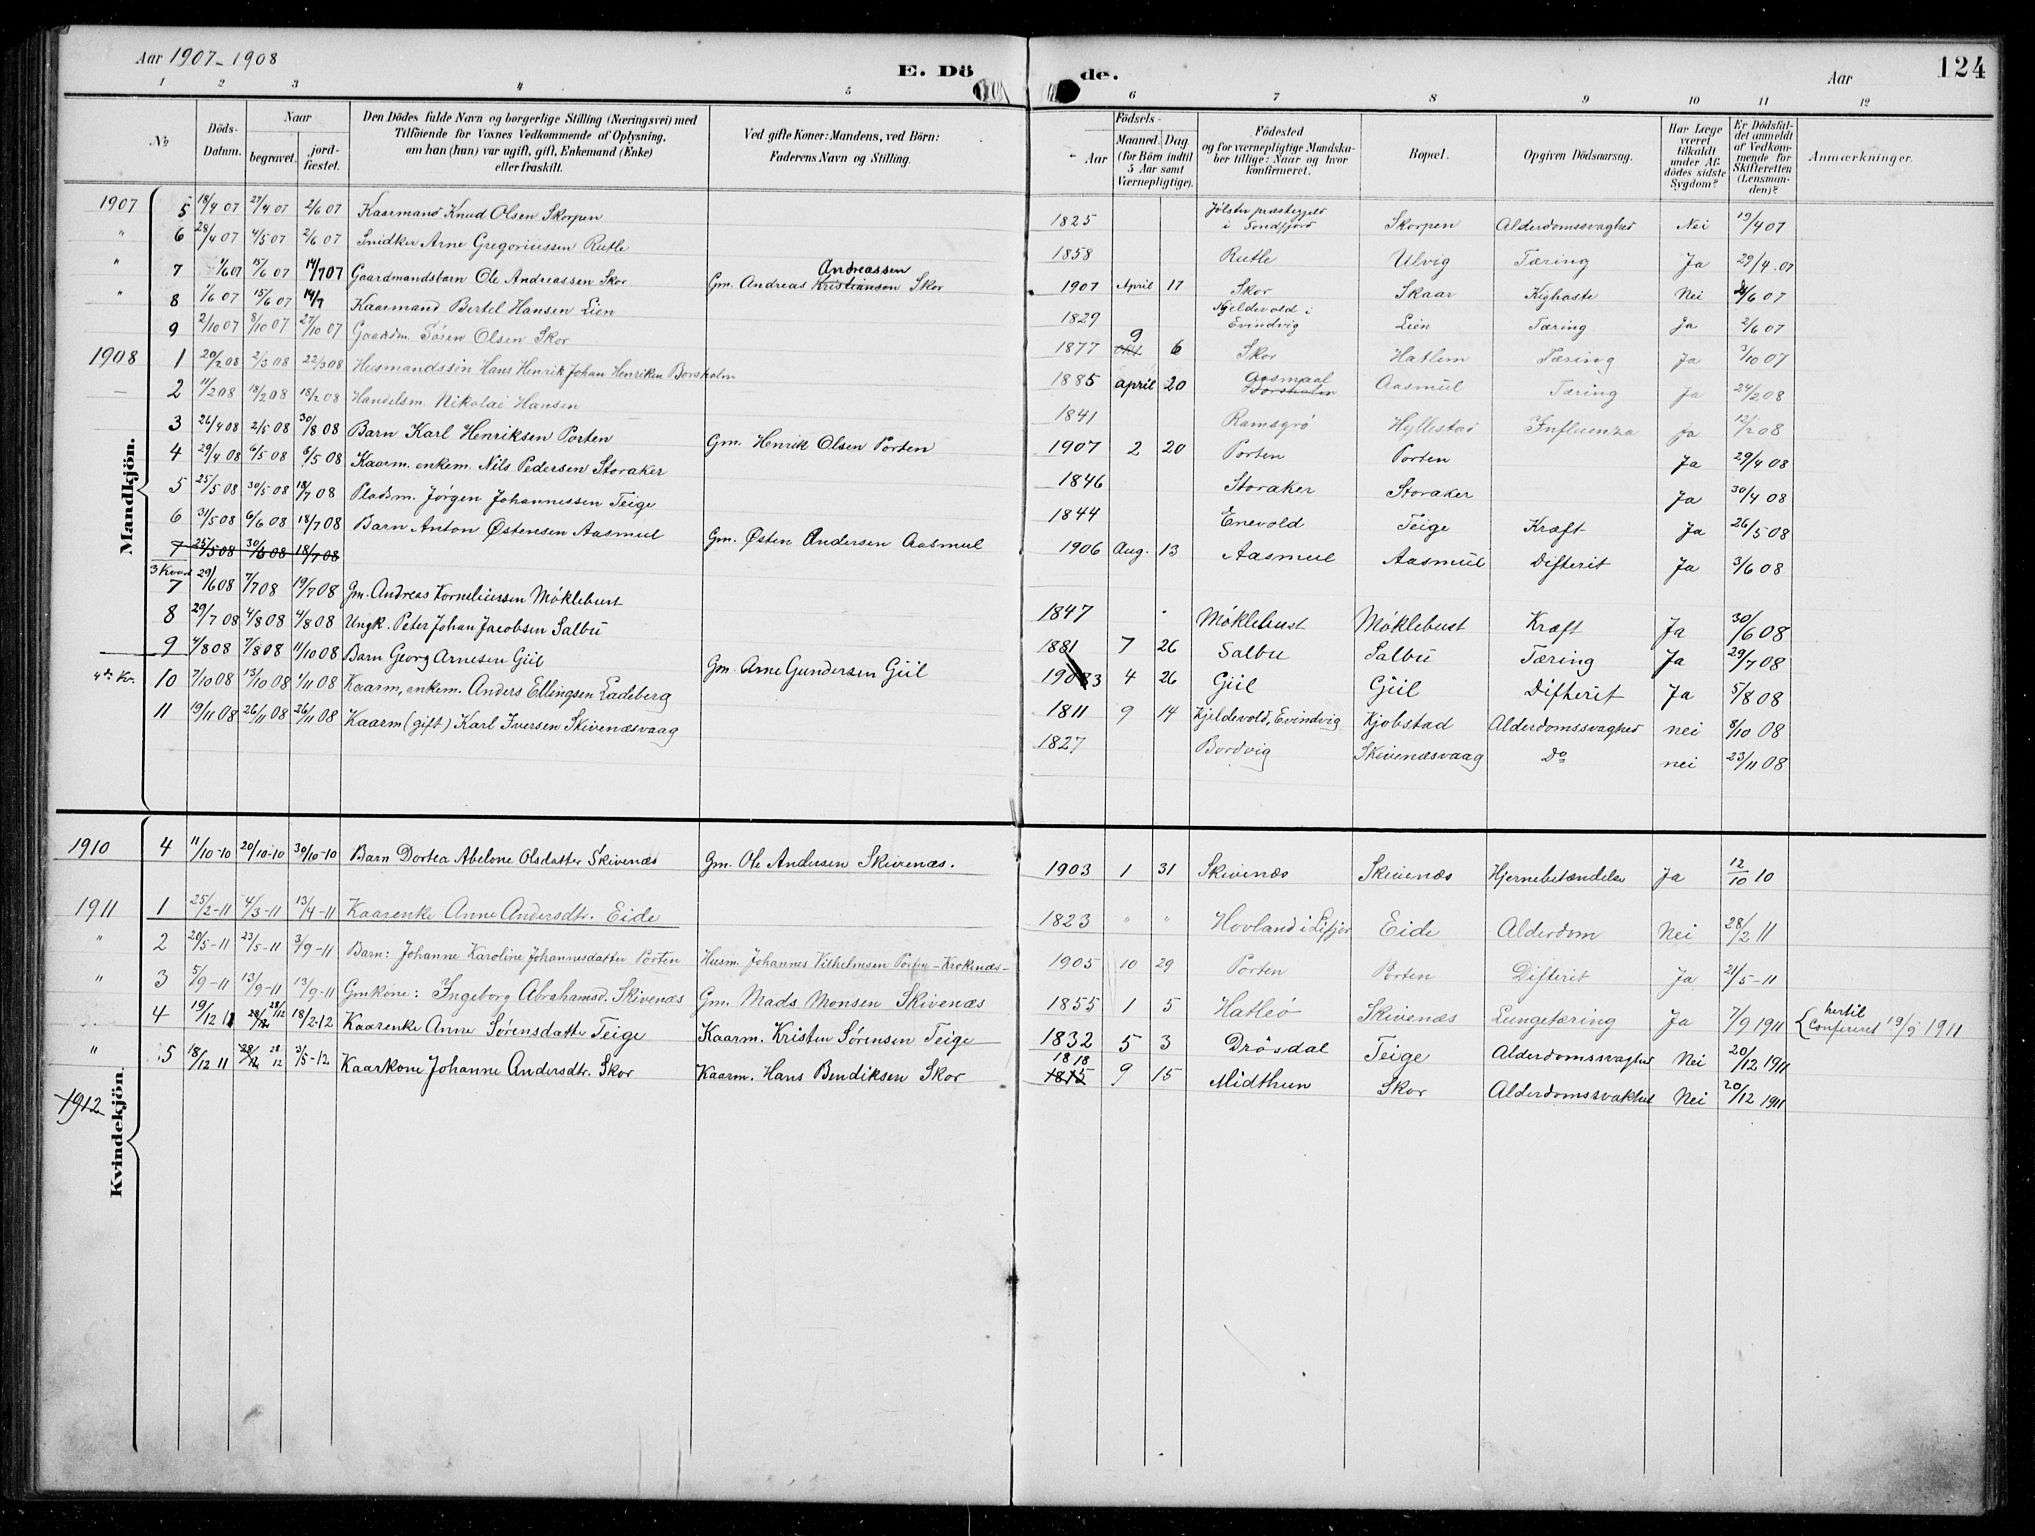 Aar 1907-1908
E. Dö de.
Aar
124
1 2 3 4 5 6 7 8 9 10 11 12
No
Döds-Datum.
Naar
begravet.
jord-fæstet.
Den Dödes fulde Navn og borgerlige Stilling (Næringsvei) med
Tilföiende for Voxnes Vedkommende af Oplysning,
om han (hun) var ugift, gift, Enkemand (Enke)
eller fraskilt.
Ved gifte Koner: Mandens, ved Börn:
Faderens Navn og Stilling.
Födsels-
Aar
Maaned. Dag.
(for Börn indtil
5 Aar samt
Værnepligtige).
Födested
og for værnepligtige Mandska-
ber tillige: Naar og hvor
konfirmeret.
Bopæl.
Opgiven Dödsaarsag.
Har Læge
været
tilkaldt
under Af-
dödes sidste
Sygdom?
Er Dödsfal-
det anmeldt
af Vedkom-
mende for
Skifteretten
(Lensman-
den)?
Anmærkninger.
Mandkjön.
1907 5 18/4 07 27/4 07 2/6 07 Kaarmand Knud Olsen Skorpen 1825 Jølster præstegjeld i Søndfjord Skorpen Alderdomssvaghed Nei 19/4 07
" 6 28/4 07 4/5 07 2/6 07 Snidker Arne Gregoriussen Rutle 1858 Rutle Ulvig Tæring Ja 29/4 07
" 7 1/6 07 15/6 07 14/7 07 Gaardmandsbarn Ole Andreassen Skor Gm. Andreas Kristiansen Andreassen Skor 1907 April 17 Skor Skaar Kighoste Nei 2/6 07
" 8 1/6 07 15/6 07 14/7 Kaarmand Bertel Hansen Lien 1829 Njeldevold i Evindvig Lien Tæring Ja 2/6 07
9 2/10 07 8/10 07 27/10 07 Gaardm. Søren Olsen Skor 1877 9 6 Skor Hatlem Tæring Ja 3/10 07
1908 1 20/2 08 2/3 08 22/3 08 Husmandssøn Hans Henrik Johan Henriksen Borsholm 1885 april 20 Aasmaal Borsholm Aasmul Tæring Ja 24/2 08
2 11/2 08 18/2 08 18/2 08 Handelsm. Nikolai Hansen 1841 Ramsgrø Hyllestad Influenza Ja 12/2 08
3 26/4 08 2/5 08 30/8 08 Barn Karl Henriksen Porten Gm. Henrik Olsen Porten 1907 2 20 Porten Porten Ja 29/4 08
4 29/4 08 6/5 08 6/5 08 Kaarm. enkem. Nils Pedersen Storaker 1846 Storaker Storaker Ja 30/4 08
5 25/5 08 30/5 08 18/7 08 Pladsm. Jørgen Johannessen Teige 1844 Enevold Teige Kræft Ja 26/5 08
6 31/5 08 6/6 08 18/7 08 Barn Anton Østensen Aasmul Gm. Østen Andersen Aasmul 1906 Aug. 13 Aasmul Aasmul Difterit Ja 3/6 08
7 25/5 08 30/5 08 18/7 08
3 Kvart
7 29/6 08 7/7 08 19/7 08 Gm. Andreas Korneliussen Møklebust 1847 Møklebust Møklebust Kræft Ja 30/6 08
8 29/7 08 4/8 08 4/8 08 Ungk. Peter Johan Jacobsen Salbu 1881 7 26 Salbu Salbu Tæring Ja 29/7 08
9 4/8 08 7/8 08 11/10 08 Barn Georg Arnesen Giil Gm. Arne Gundersen Giil 1903 4 26 Giil Giil Difterit Ja 5/8 08
4de Kv. 10 7/10 08 13/10 08 1/11 08 Kaarm, enkem. Anders Ellingsen Ladeberg 1811 9 14 Kjeldevold, Evindvig Kjobstad Alderdomssvaghed nei 8/10 08
11 19/11 08 26/11 08 26/11 08 Kaarm (gift) Karl Iversen Skivenæsvaag 1827 Bordvig Skivenæsvaag Do nei 23/11 08
Kvindekjön.
1910 4 11/10-10 20/10-10 30/10-10 Barn Dortea Abelone Olsdatter Skivenæs Gm. Ole Andersen Skivenæs. 1903 1 31 Skivenæs Skivenæs Hjernebetændelse Ja 12/10 10
1911 1 25/2-11 4/3-11 13/4-11 Kaarenke Anne Andersdtr. Eide 1823 " " Hovland i Lifjor Eide Alderdom Nei 28/2 11
" 2 20/5-11 23/5-11 3/9-11 Barn: Johanne Karoline Johannesdatter Porten Husm. Johannes Vilhelmsen Porten - Krokenæs - 1905 10 29 Porten Porten Difterit Ja 21/5-11
" 3 5/9-11 13/9-11 13/9-11 Gmkone: Ingeborg Abrahamsd. Skivenæs Gm. Mads Monsen Skivenæs 1855 1 5 Hatleø Skivenæs Lungetæring Ja 7/9 1911 { hertil Confereret 19/9 1911
4 19/12 11 28/12 18/2-12 Kaarenke Anne Sørensdatter Teige Kaarm. Kristen Sørensen Teige 1832 5 3 Drösdal Teige Alderdomssvaghed Nei 20/12 1911
" 5 18/12 11 28/12 3/5-12 Kaarkone Johanne Andersdtr. Skor Kaarm. Hans Bendiksen Skor 1815 1818 9 15 Midthun Skor Alderdomssvakhed Nei 20/12 1911
1912